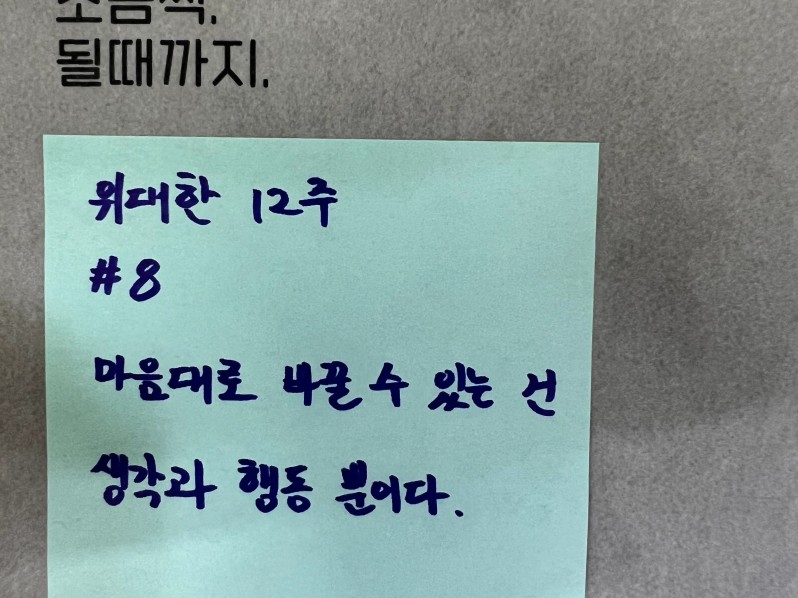 조금씩.
될때까지.
위대한 12주
#8
마음대로 바꿀 수 있는 건
생각과 행동 뿐이다.